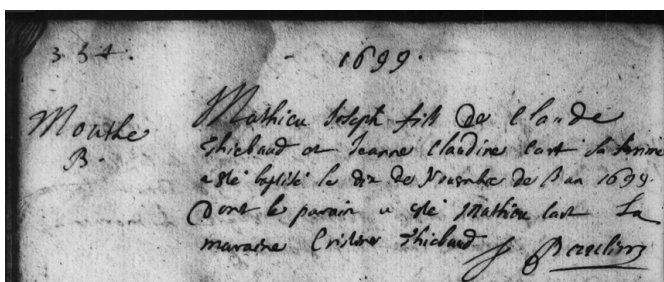 354.
1699.
Mouthe
B.
Mathieu Joseph fils De Claude
Thiebaud et Jeanne Claudine Cart sa femme
a esté baptisé le dix de Novembre de l an 1699
Dont le parain a esté Mathieu Cart La
maraine Cristine Thiebaud